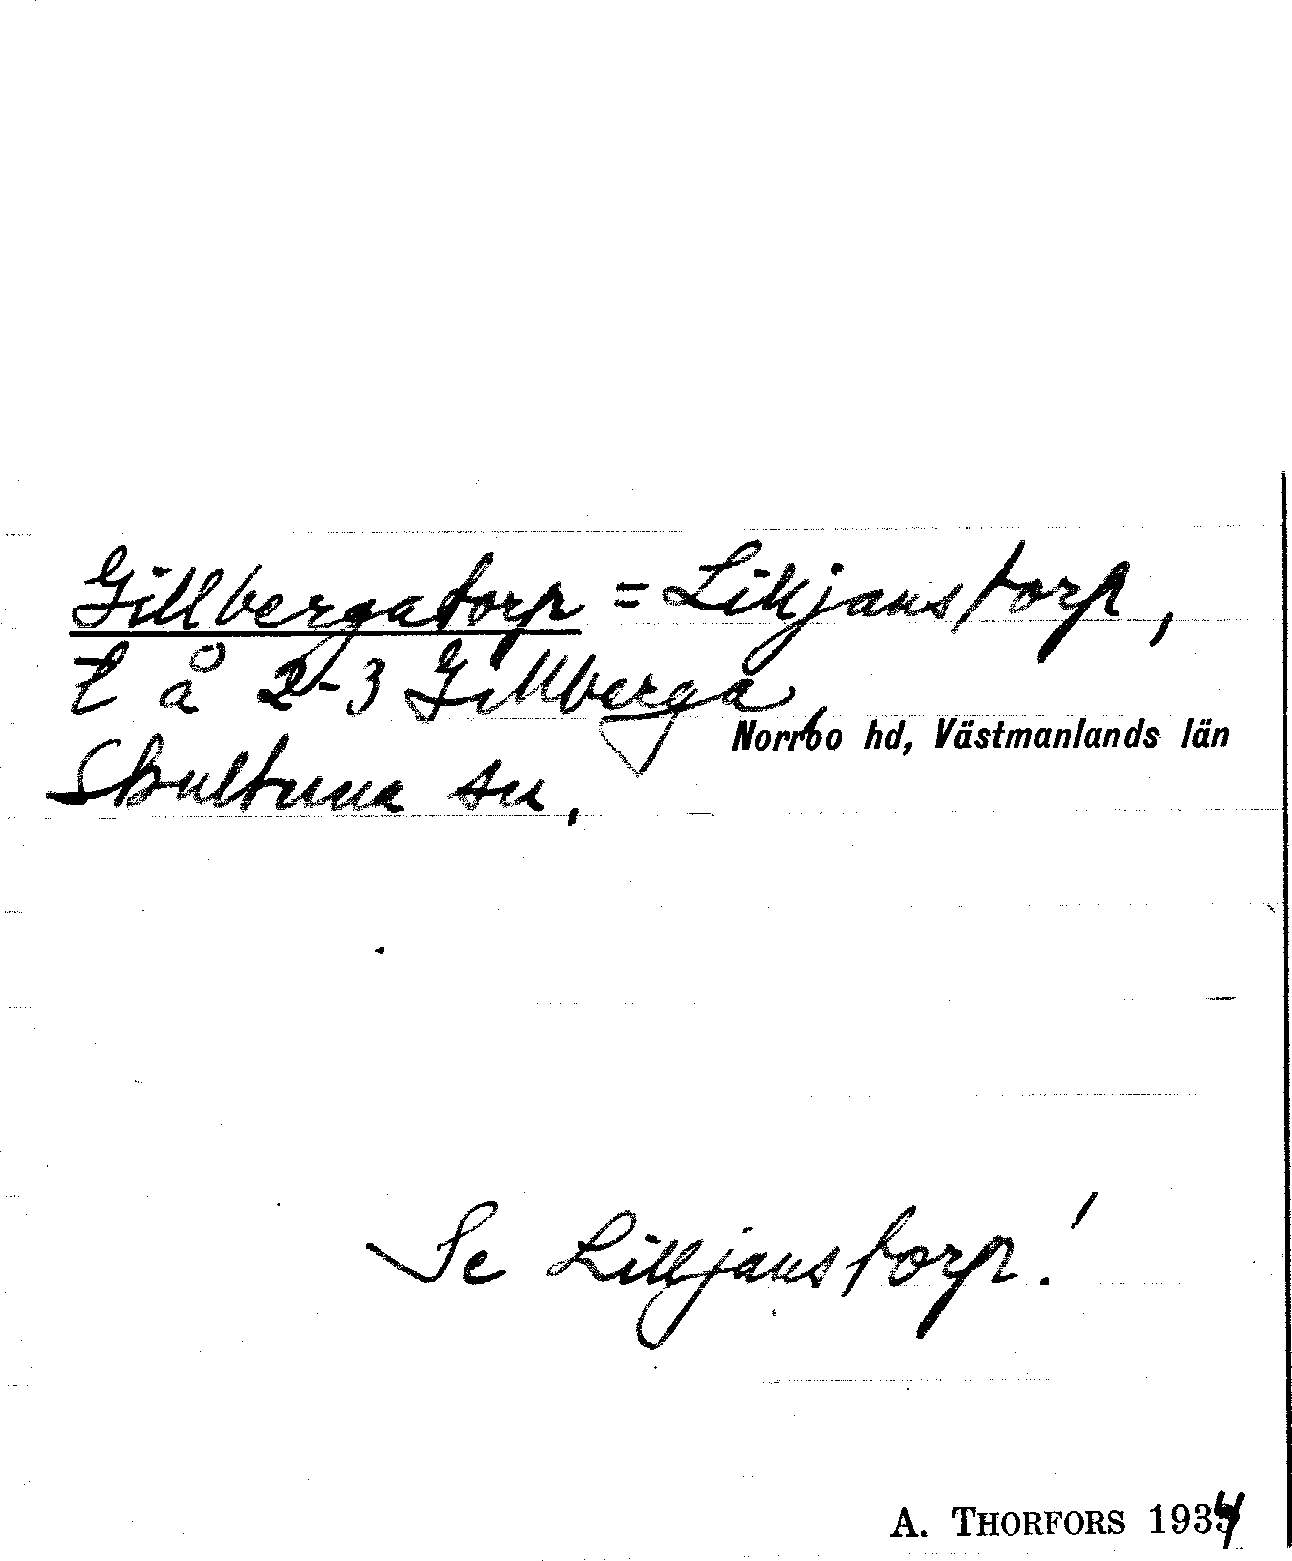 Gillbergatorp = Lilljanstorp,
t å 2-3 Gillberga,
Norrbo hd, Västmanlands län
Skultuna sn,
Se Lilljanstorp!
A. THORFORS 1934